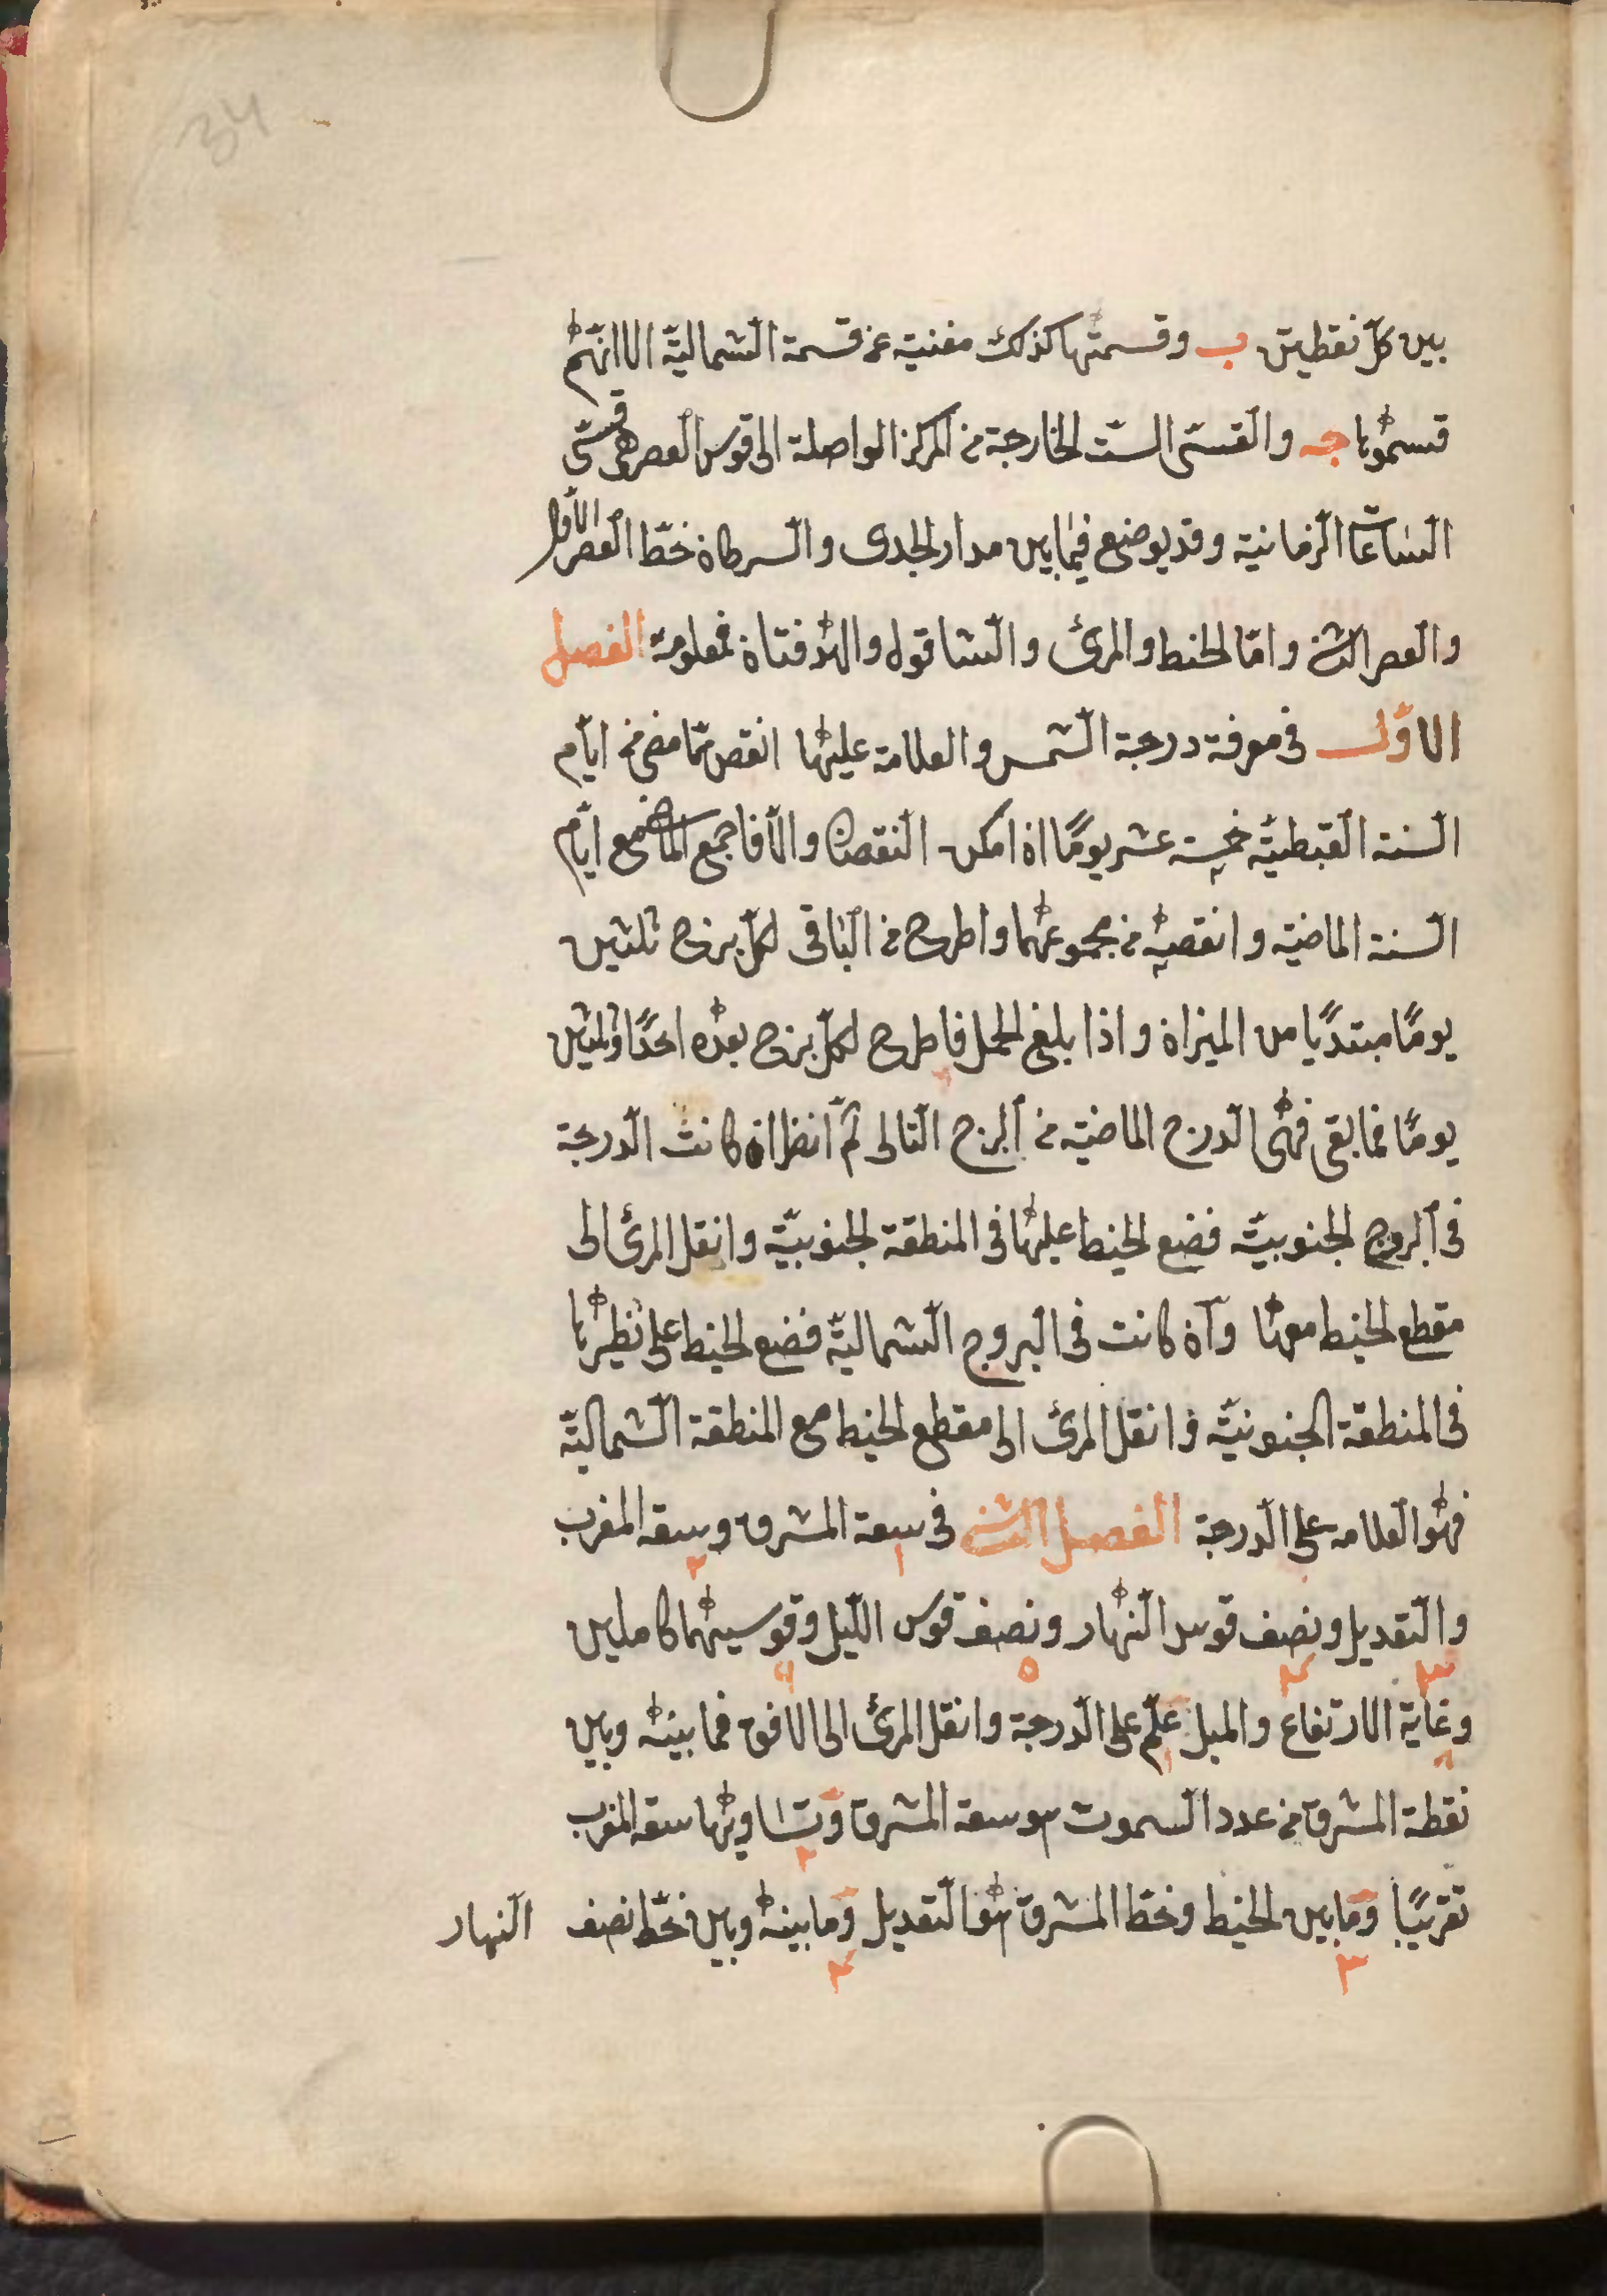 34
بين كلّ نقطتين ب وقسمتها كذلك مغنية عن قسمة الشمالية الا انهم
قسموها جه والقسىّ الستّ الخارجة من المركز الواصلة الى قوس العصر هى قسىّ
الساعات الزمانية وقد يوضع فيما بين مدار الجدى والسرطان خطّ العصر الأول
والعصر الثانى وامّا الخيط والمرئ والشاقول والهدفتان فمعلومة الفصل
الاوّل فى معرفة درجة الشمس والعلامة عليها انقص ممّا مضى من ايّام
السنة القبطيّة خمسة عشر يومًا ان امكن النقصان والّا فاجمع الماضى مع ايّام
السنة الماضية وانقصه من مجموعهما واطرح من الباقى لكلّ برج ثلثين
يومًا مبتديًا من الميزان واذا بلغ الحمل فاطرح لكلّ برج بعده احدًا وثلثين
يومًا فما بقى فهى الدرج الماضية من البرج التالى ثمّ انظر ان كانت الدرجة
فى البروج الجنوبيّة فضع الخيط عليها فى المنطقة الجنوبيّة وانقل المرئ الى
مقطع الخيط معها وان كانت فى البروج الشماليّة فضع الخيط على نظيرها
فى المنطقة الجنوبيّة وانقل المرئ الى مقطع الخيط مع المنطقة الشماليّة
فهو العلامه على الدرجة الفصل الثانى فى سعة المشرق وسعة المغرب
والتعديل ونصف قوس النهار ونصف قوس الليل وقوسيهما كاملين
وغاية الارتفاع والميل علّم على الدرجة وانقل المرئ الى الافق فما بينه وبين
نقطة المشرق من عدد السموت هو سعة المشرق وتساويها سعة المغرب
تقريبًا وما بين الخيط وخطّ المشرق هو التعديل وما بينه وبين خطّ نصف النهار